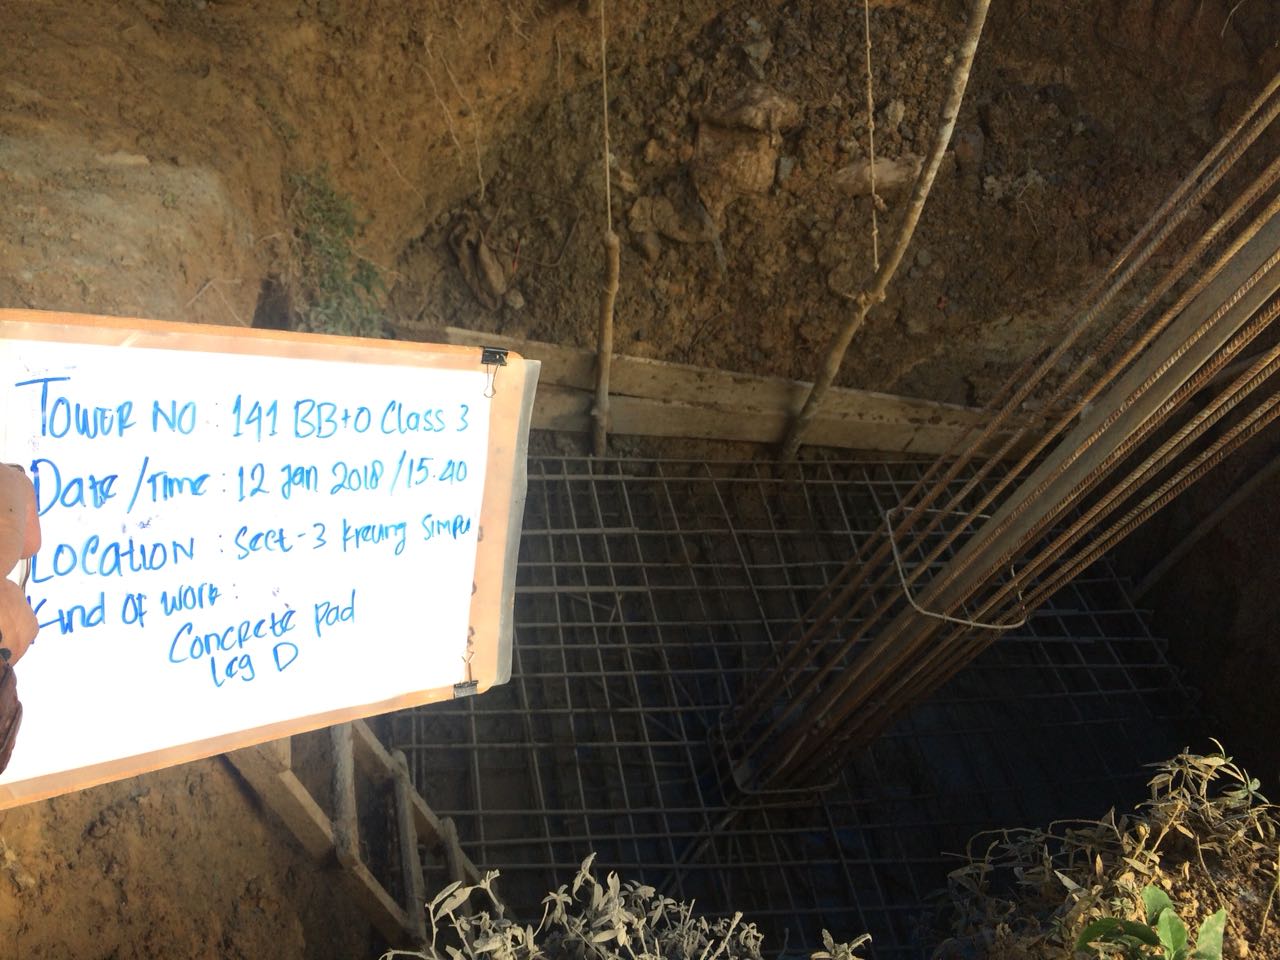 Tower No : 141 BB+0 Class 3
Date/Time : 12 Jan 2018/15.40
Location : Sect-3 Kreung Simpu
Kind of work :
Concrete pad
Leg D